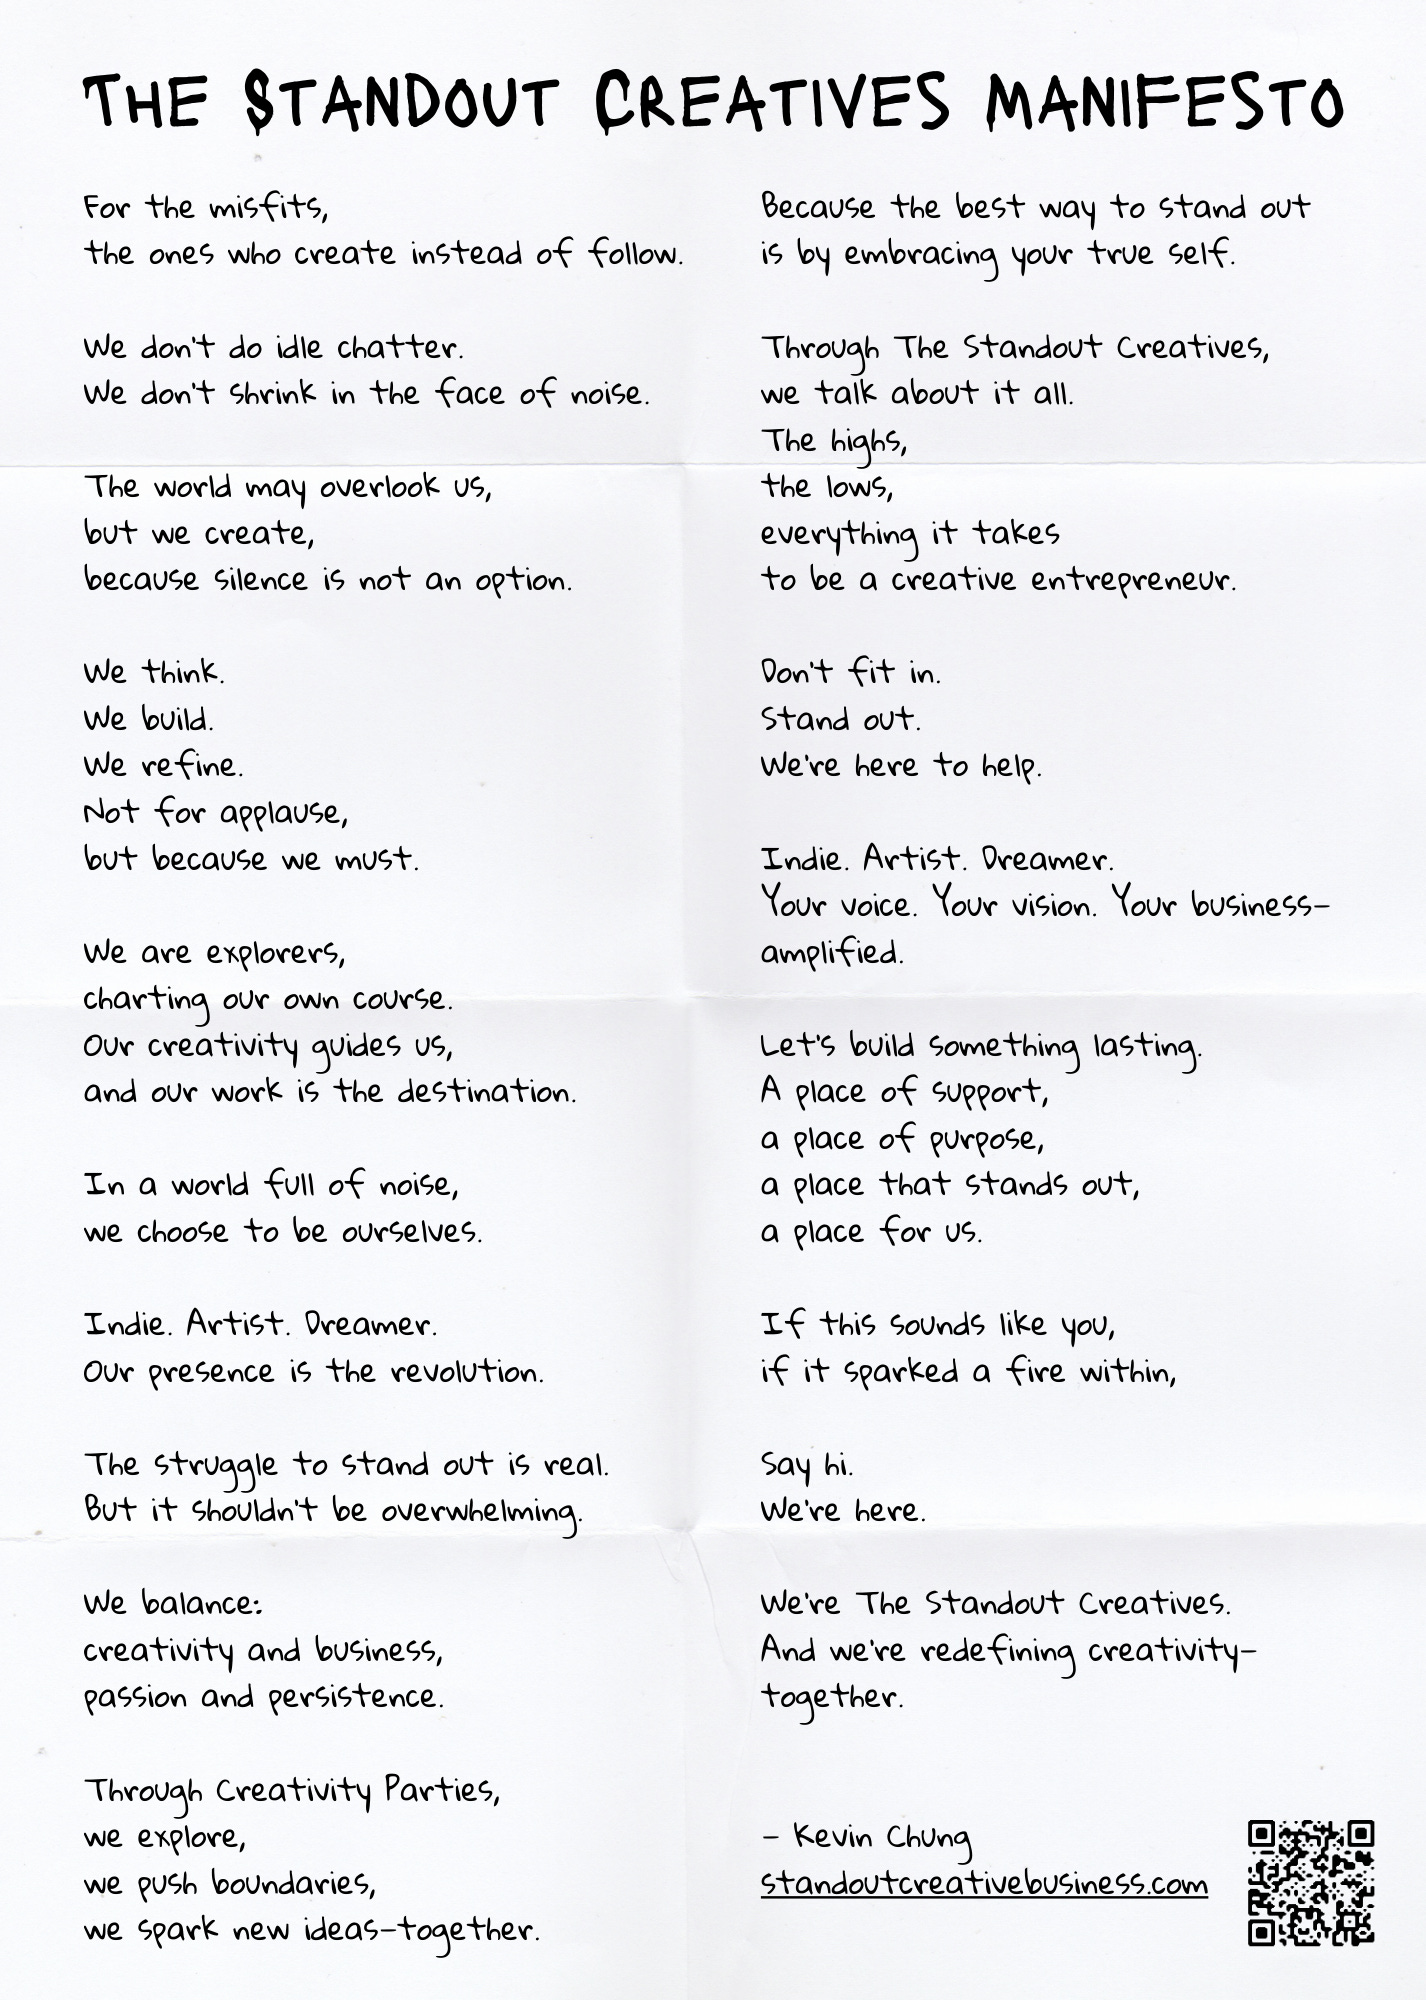 THE STANDOUT CREATIVES MANIFESTO
For the misfits,
the ones who create instead of follow.
We don't do idle chatter.
We don't shrink in the face of noise.
The world may overlook us,
but we create,
because silence is not an option.
We think.
We build.
We refine.
Not for applause,
but because we must.
We are explorers,
charting our own course.
Our creativity guides us,
and our work is the destination.
In a world full of noise,
we choose to be ourselves.
Indie. Artist. Dreamer.
Our presence is the revolution.
The struggle to stand out is real.
But it shouldn't be overwhelming.
We balance:
creativity and business,
passion and persistence.
Through Creativity Parties,
we explore,
we push boundaries,
we spark new ideas—together.
Because the best way to stand out
is by embracing your true self.
Through The Standout Creatives,
we talk about it all.
The highs,
the lows,
everything it takes
to be a creative entrepreneur.
Don't fit in.
Stand out.
We're here to help.
Indie. Artist. Dreamer.
Your voice. Your vision. Your business—
amplified.
Let's build something lasting.
A place of support,
a place of purpose,
a place that stands out,
a place for us.
If this sounds like you,
if it sparked a fire within,
Say hi.
We're here.
We're The Standout Creatives.
And we're redefining creativity—
together.
- Kevin Chung
standoutcreativebusiness.com